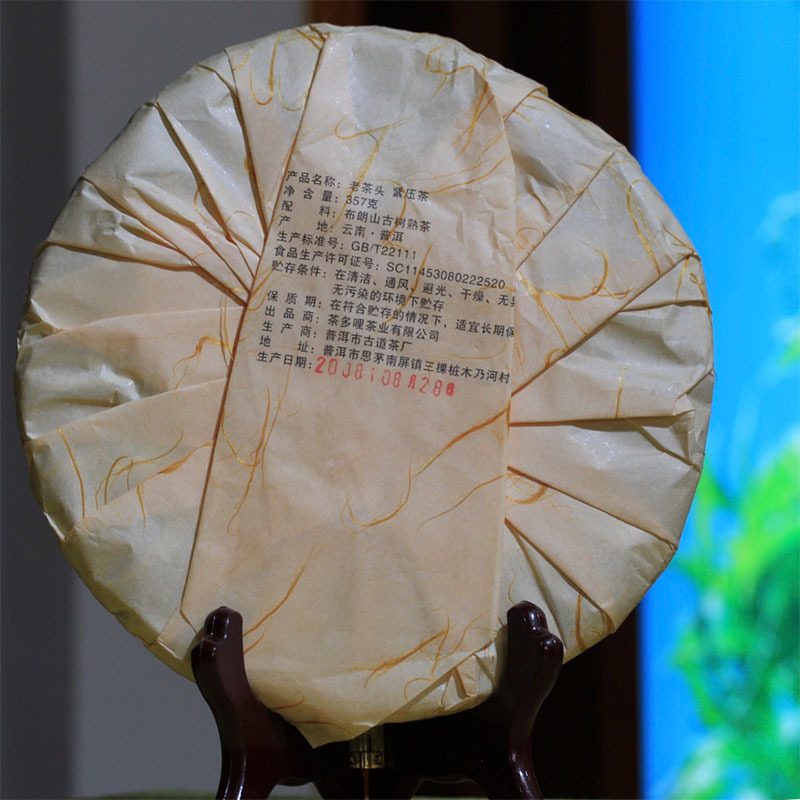 产品名称：老茶头 紧压茶
净含量：357克
配 料：布朗山古树熟茶
产 地：云南·普洱
生产标准号：GB/T22111
食品生产许可证号：SC11453080222520
贮存条件：在清洁、通风、避光、干燥、无
无污染的环境下贮存
保质期：在符合贮存的情况下，适宜长期保
出品商：茶多哩茶业有限公司
生产商：普洱市古道茶厂
地 址：普洱市思茅南屏镇三棵桩木乃河村
生产日期：2008 08月28日